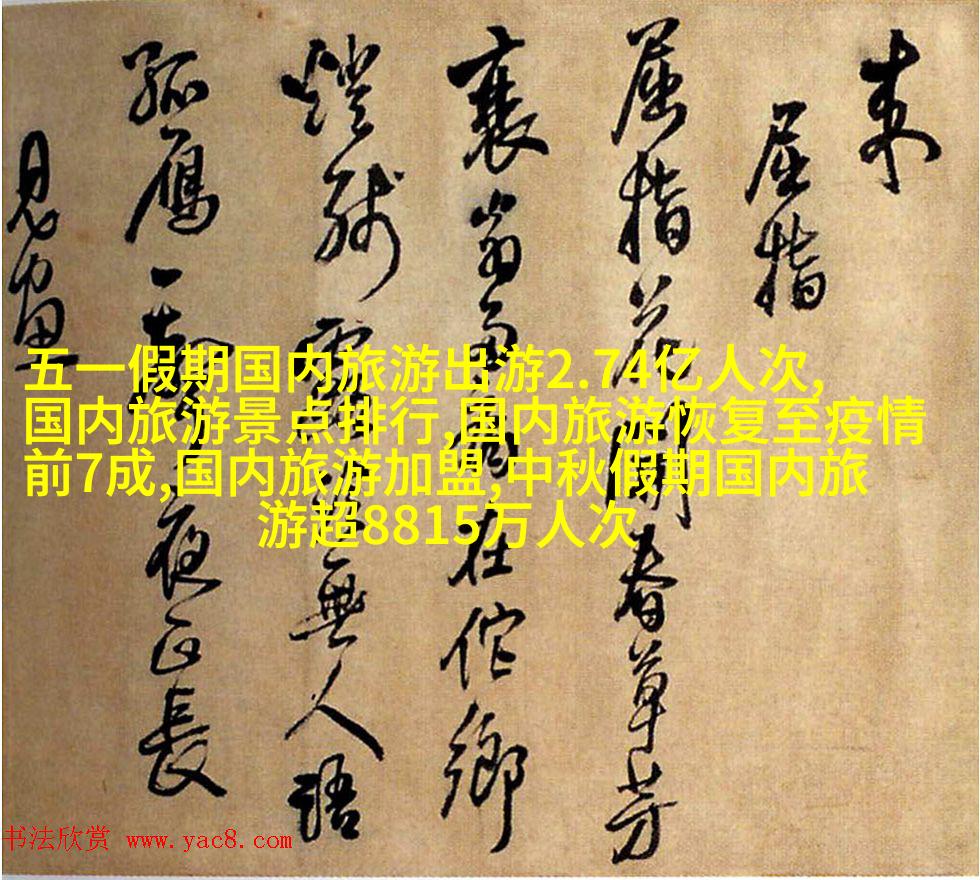 屈指
屈指花開春草芳
衰翁在佗鄉
燈殘無人語
孤雁一聲夜正長
五一假期国内旅游出游2.74亿人次,
国内旅游景点排行,国内旅游恢复至疫情
前7成,国内旅游加盟,中秋假期国内旅
游超8815万人次
书法欣赏 www.yac8.com